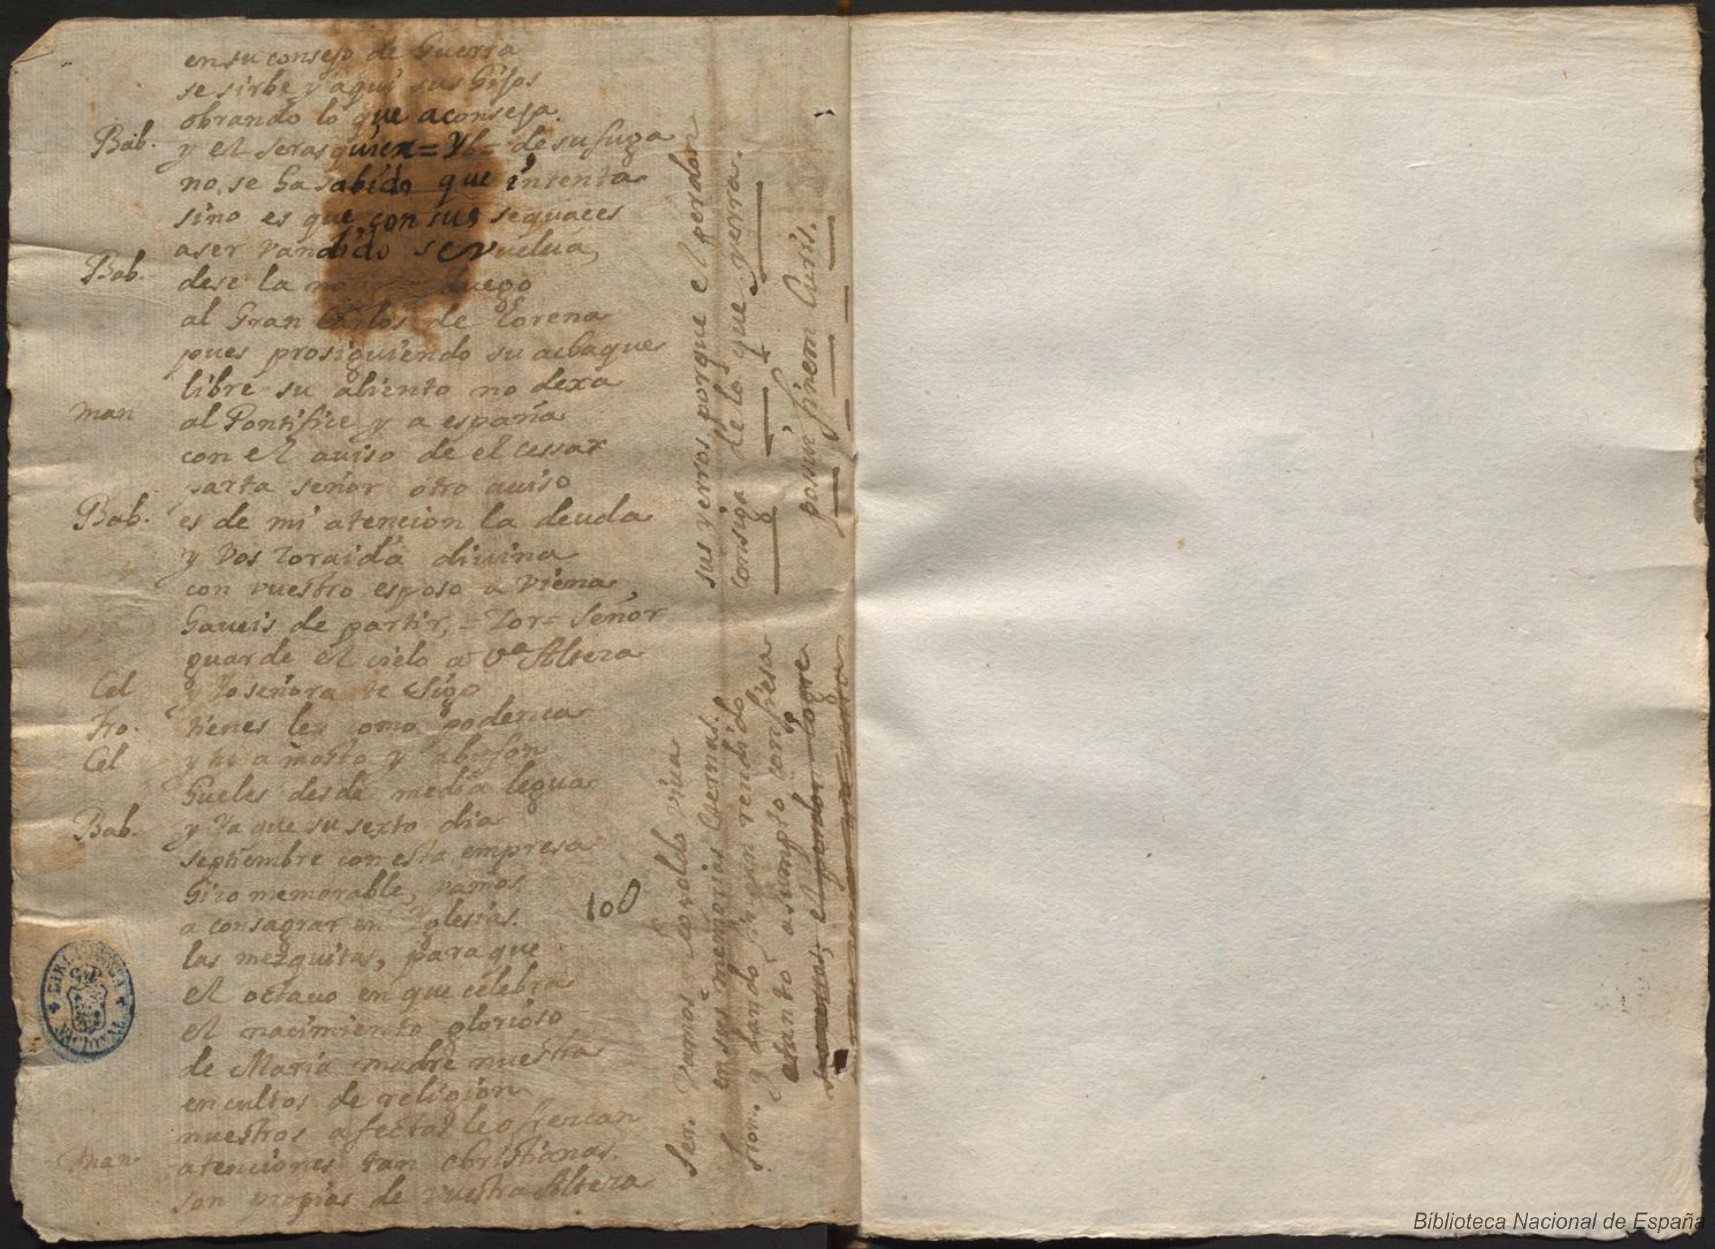 en su consejo de Guerra
se sirbe y aqui sus hijos
obrando lo que aconseja.
Bab. y el serasquier = Yb = de su fuga
no se ha sabido que intenta
sino es que con sus sequaces
a ser vandido se vuelua,
Bab. dese la luego
al Gran Carlos de Lorena
pues prosiguiendo su
libre su aliento no dexa
man al Pontifice y a españa
con el auiso de el cessar
parta señor otro auiso
Bab. es de mi atencion la deuda
y vos Zoraida diuina
con vuestro esposo a Viena
haueis de partir, = Zor = Señor
guarde el cielo a Vª Alteza
Cel y Yo señora te sigo
fro. tienes ley como podenca
Cel y tu a mosto y
hueles desde media legua
Bab. y Ya que su sexto dia
septiembre con esta empresa
hizo memorable, vamos
a consagrar en Yglesias.
las mezquitas, para que
el octauo en que celebra
el nacimiento glorioso
de Maria madre nuestra
en cultos de religion
nuestros afectos le ofrezcan
man. atenciones tan christianas.
son propias de vuestra Alteza
100
Ser. Vamos y Leopoldo viua
en sus memorias eternas.
fron. y dando fin un rendido
a tanto asumpto confiesa
el perdon logre
sus yerros porque el perdon
consiga de lo que yerra.
finem